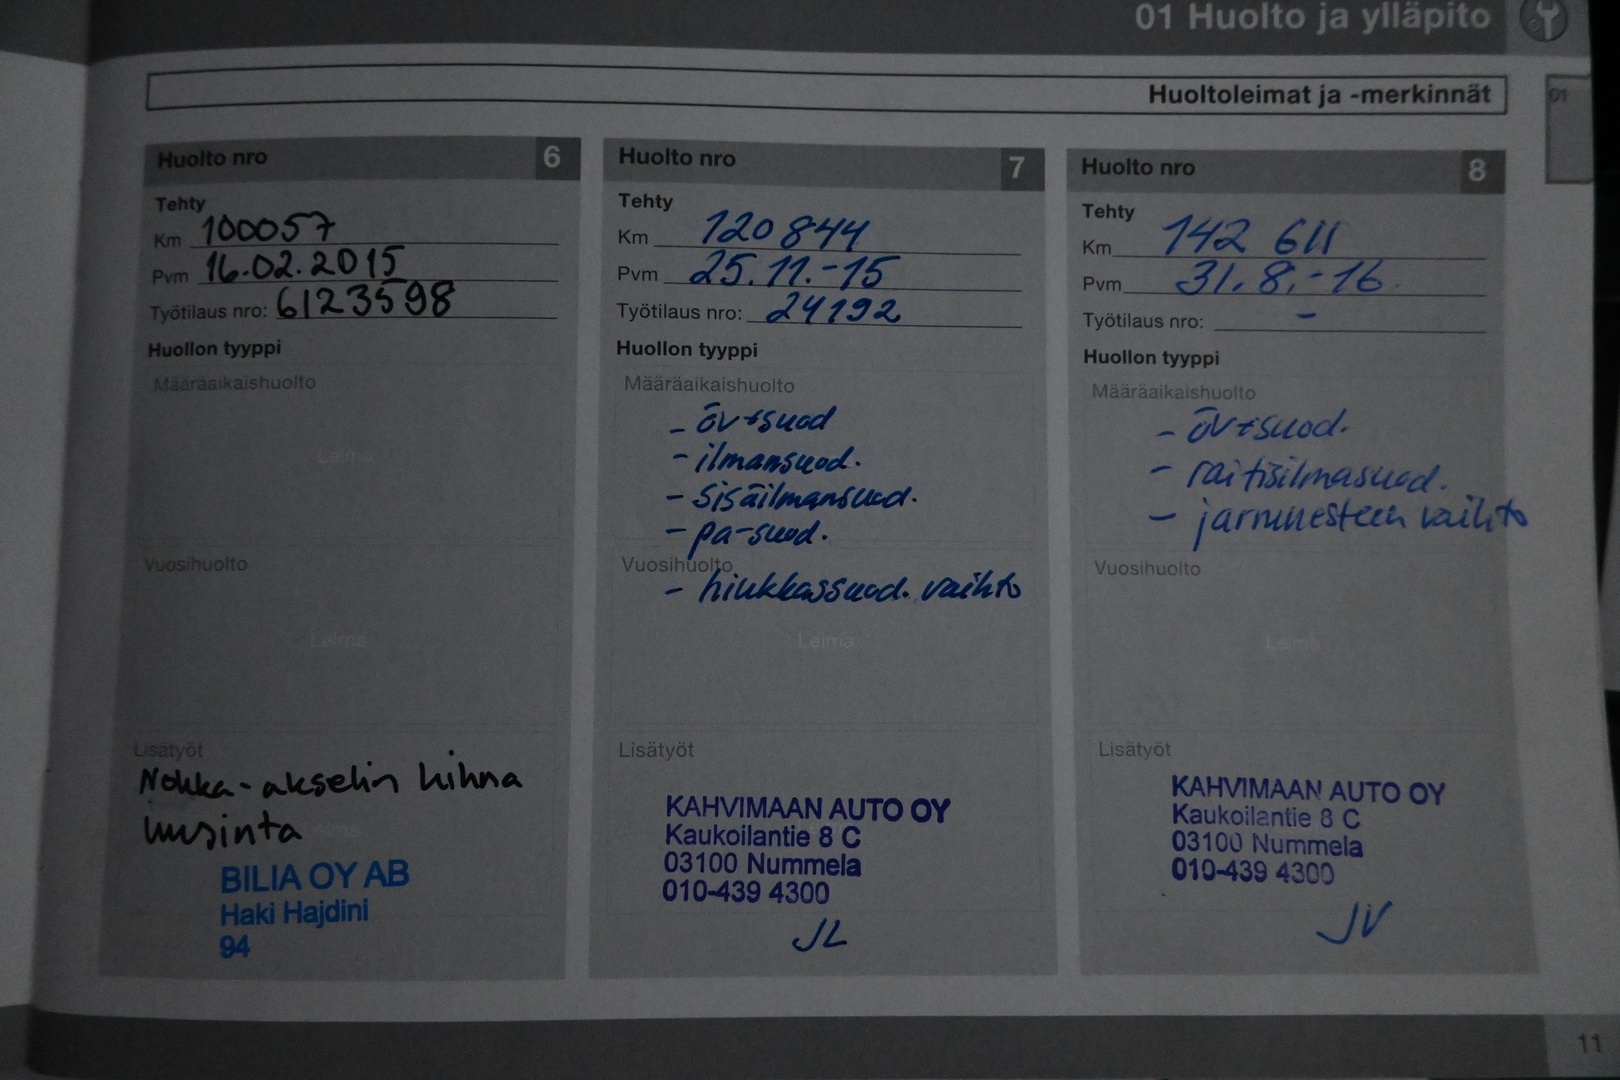 01 Huolto ja ylläpito
Huoltoleimat ja -merkinnät
01
Huolto nro 6
Tehty
Km 100057
Pvm 16.02.2015
Työtilaus nro: 6123598
Huollon tyyppi
Määräaikaishuolto
Leima
Vuosihuolto
Leima
Lisätyöt
Nokka-akselin hihna
uusinta
Leima
BILIA OY AB
Haki Hajdini
94
Huolto nro 7
Tehty
Km 120 844
Pvm 25.11.-15
Työtilaus nro: 24192
Huollon tyyppi
Määräaikaishuolto
- öv+suod
- ilmansuod.
- sisäilmansuod.
- pa-suod.
Vuosihuolto
- hiukkassuod. vaihto
Leima
Lisätyöt
KAHVIMAAN AUTO OY
Kaukoilantie 8 C
03100 Nummela
010-439 4300
JL
Huolto nro 8
Tehty
Km 142 611
Pvm 31.8.-16
Työtilaus nro: -
Huollon tyyppi
Määräaikaishuolto
- öv+suod.
- raitisilmasuod.
- jarrunesteen vaihto
Vuosihuolto
Leima
Lisätyöt
KAHVIMAAN AUTO OY
Kaukoilantie 8 C
03100 Nummela
010-439 4300
JV
11